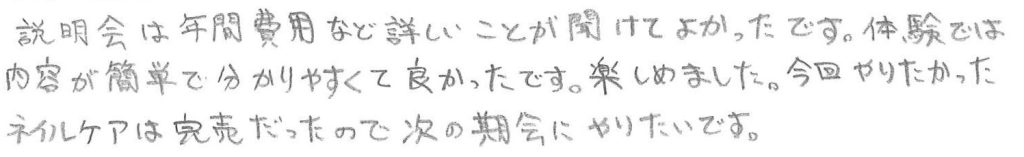 説明会は年間費用など詳しいことが聞けてよかったです。体験では
内容が簡単で分かりやすくて良かったです。楽しめました。今回やりたかった
ネイルケアは完売だったので次の期会にやりたいです。